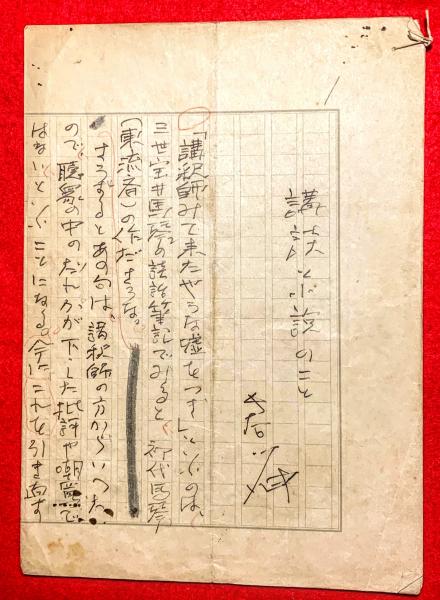 小説のこと
「講釈師みて来たやうな嘘をつき」といふのは、
三世宝井馬琴の談話筆記でみると、初代馬琴
(東流斎)の作ださうな。
さうするとあの句は、講釈師の方からいつた
ので、聴衆の中のだれかが下した批評や嘲罵で
はないといふことになる。これを引き直す